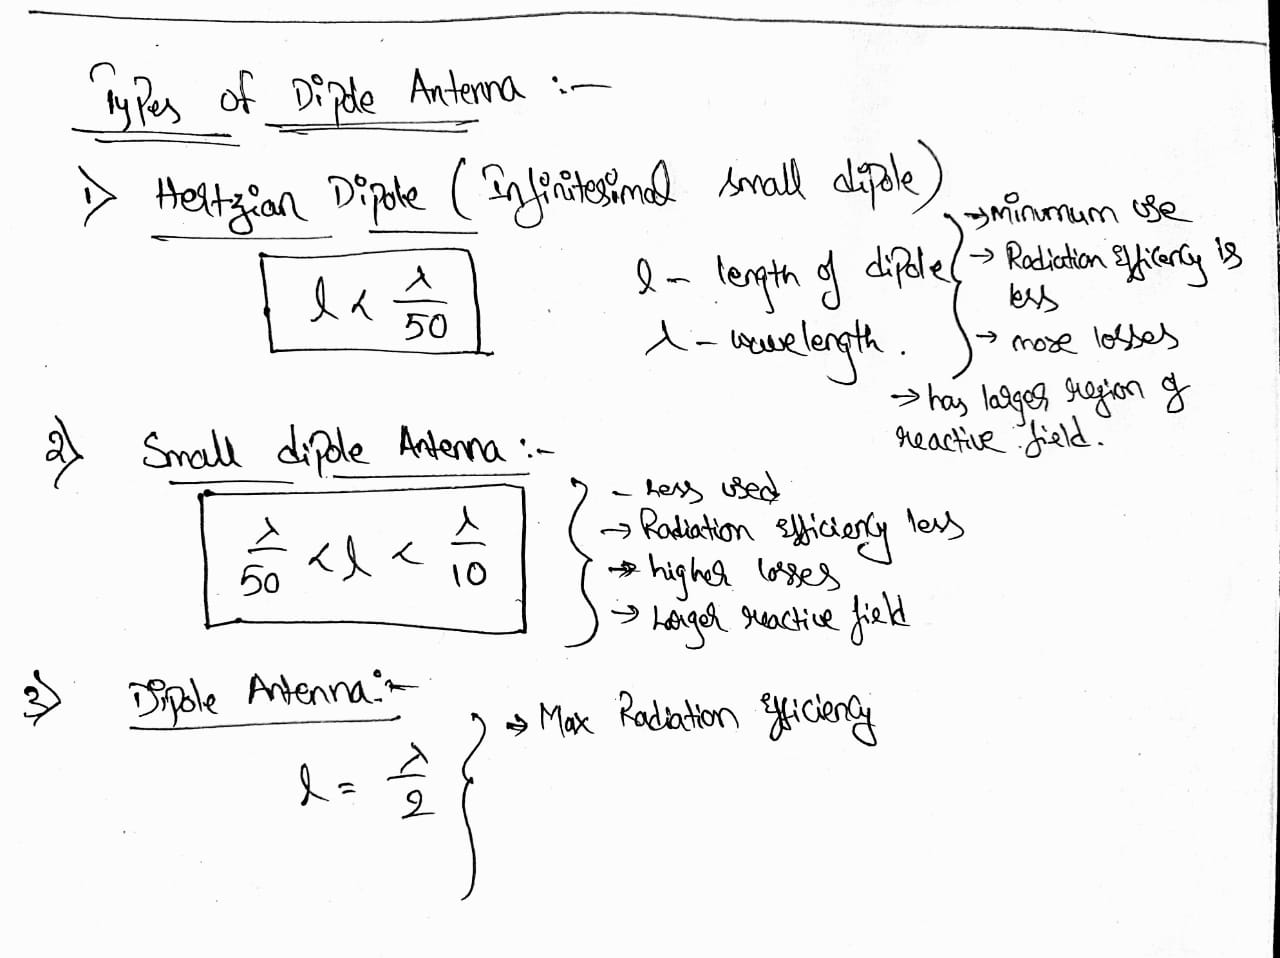 Types of Dipole Antenna :-
1) Hertzian Dipole ( Infinitesimal small dipole)
l < λ/50
l - length of dipole
λ - wavelength .
→ minimum use
→ Radiation Efficency is
less
→ more losses
→ has larger region of
reactive field.
2) Small dipole Antenna :-
λ/50 < l < λ/10
- Less used
→ Radiation efficiency less
→ higher losses
→ Larger reactive field
3) Dipole Antenna :-
l = λ/2
→ Max Radiation Efficiency